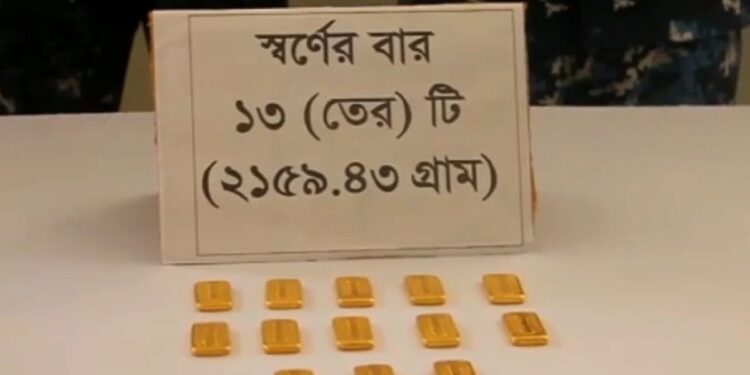 স্বর্ণের বার
১৩ (তের) টি
(২১৫৯.৪৩ গ্রাম)